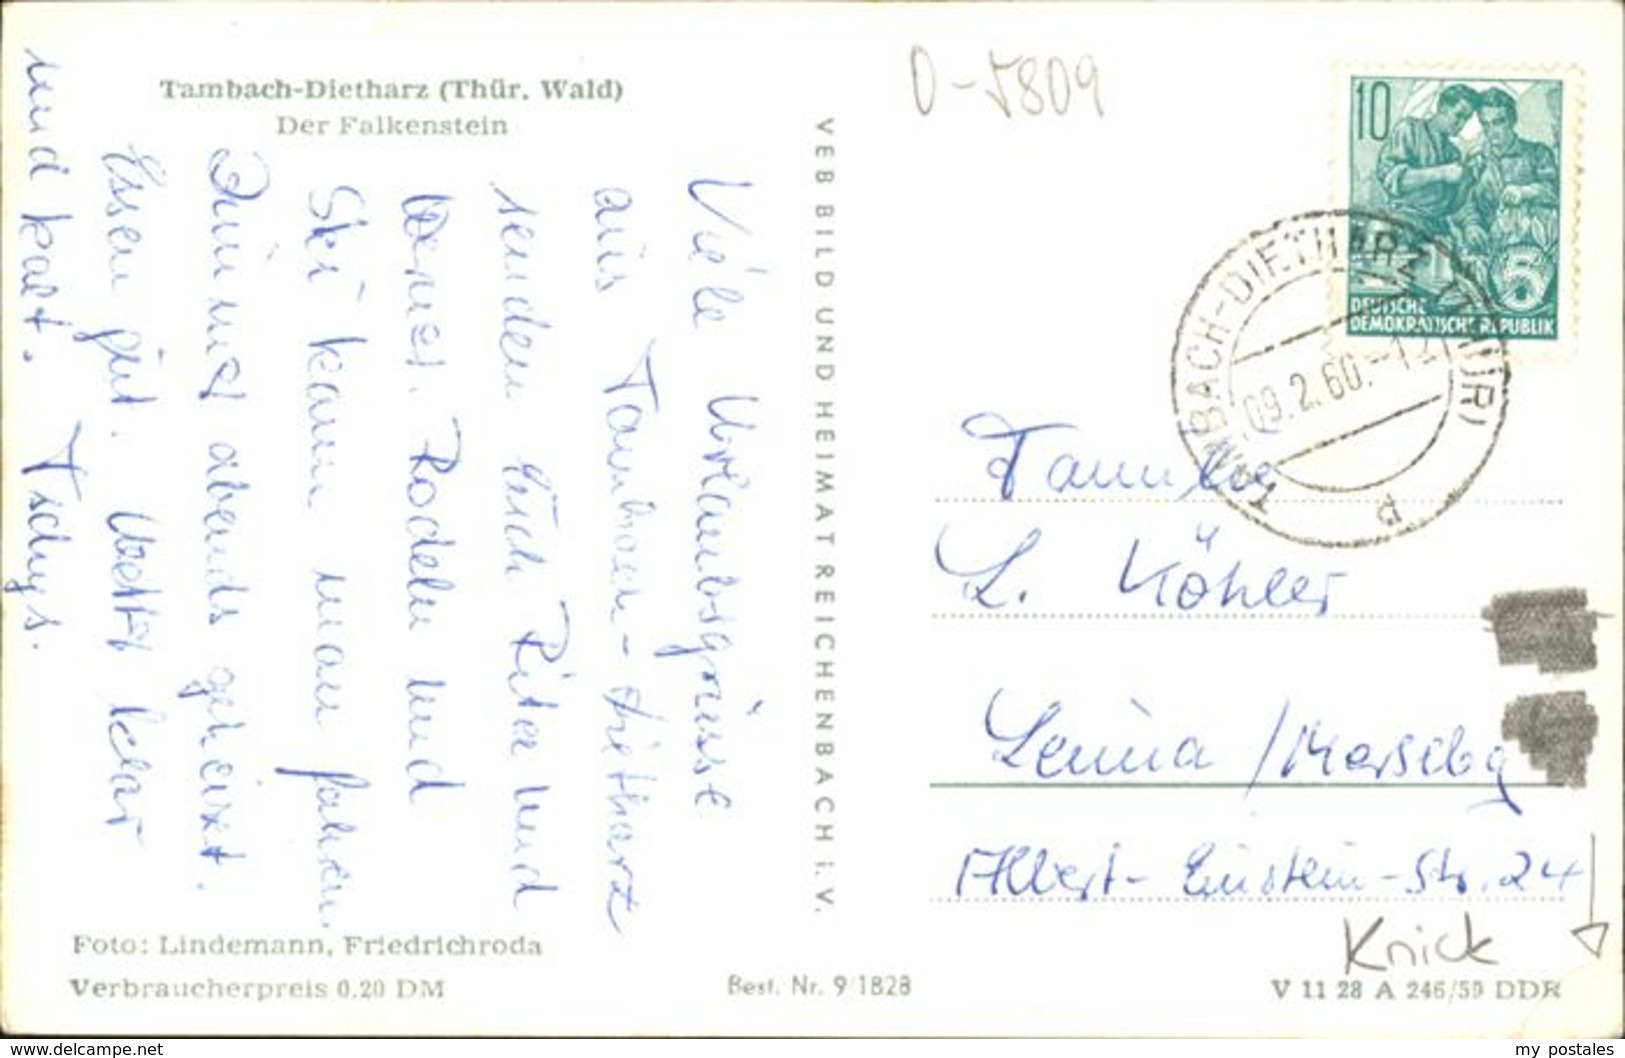 Tambach-Dietharz (Thür. Wald)
Der Falkenstein
Viele Urlaubsgrüsse
aus Tambach-Dietharz
senden Euch Rita und
Werner. Rodeln und
Ski kann man fahren.
Zimmer abends geheizt.
Essen gut. Wetter klar
und kalt. Tschüß.
Foto: Lindemann, Friedrichroda
Verbraucherpreis 0.20 DM
VEB BILD UND HEIMAT REICHENBACH I. V.
Best. Nr. 9/1828
D-5809
10
5
DEUTSCHE
DEMOKRATISCHE REPUBLIK
TAMBACH-DIETHARZ (THÜR)
09.2.60.-12
a
Familie
L. Köhler
Leuna / Mersebg
Albert-Einstein-Str. 24
Knick
V 11 28 A 246/59 DDR
www.delcampe.net
my postales